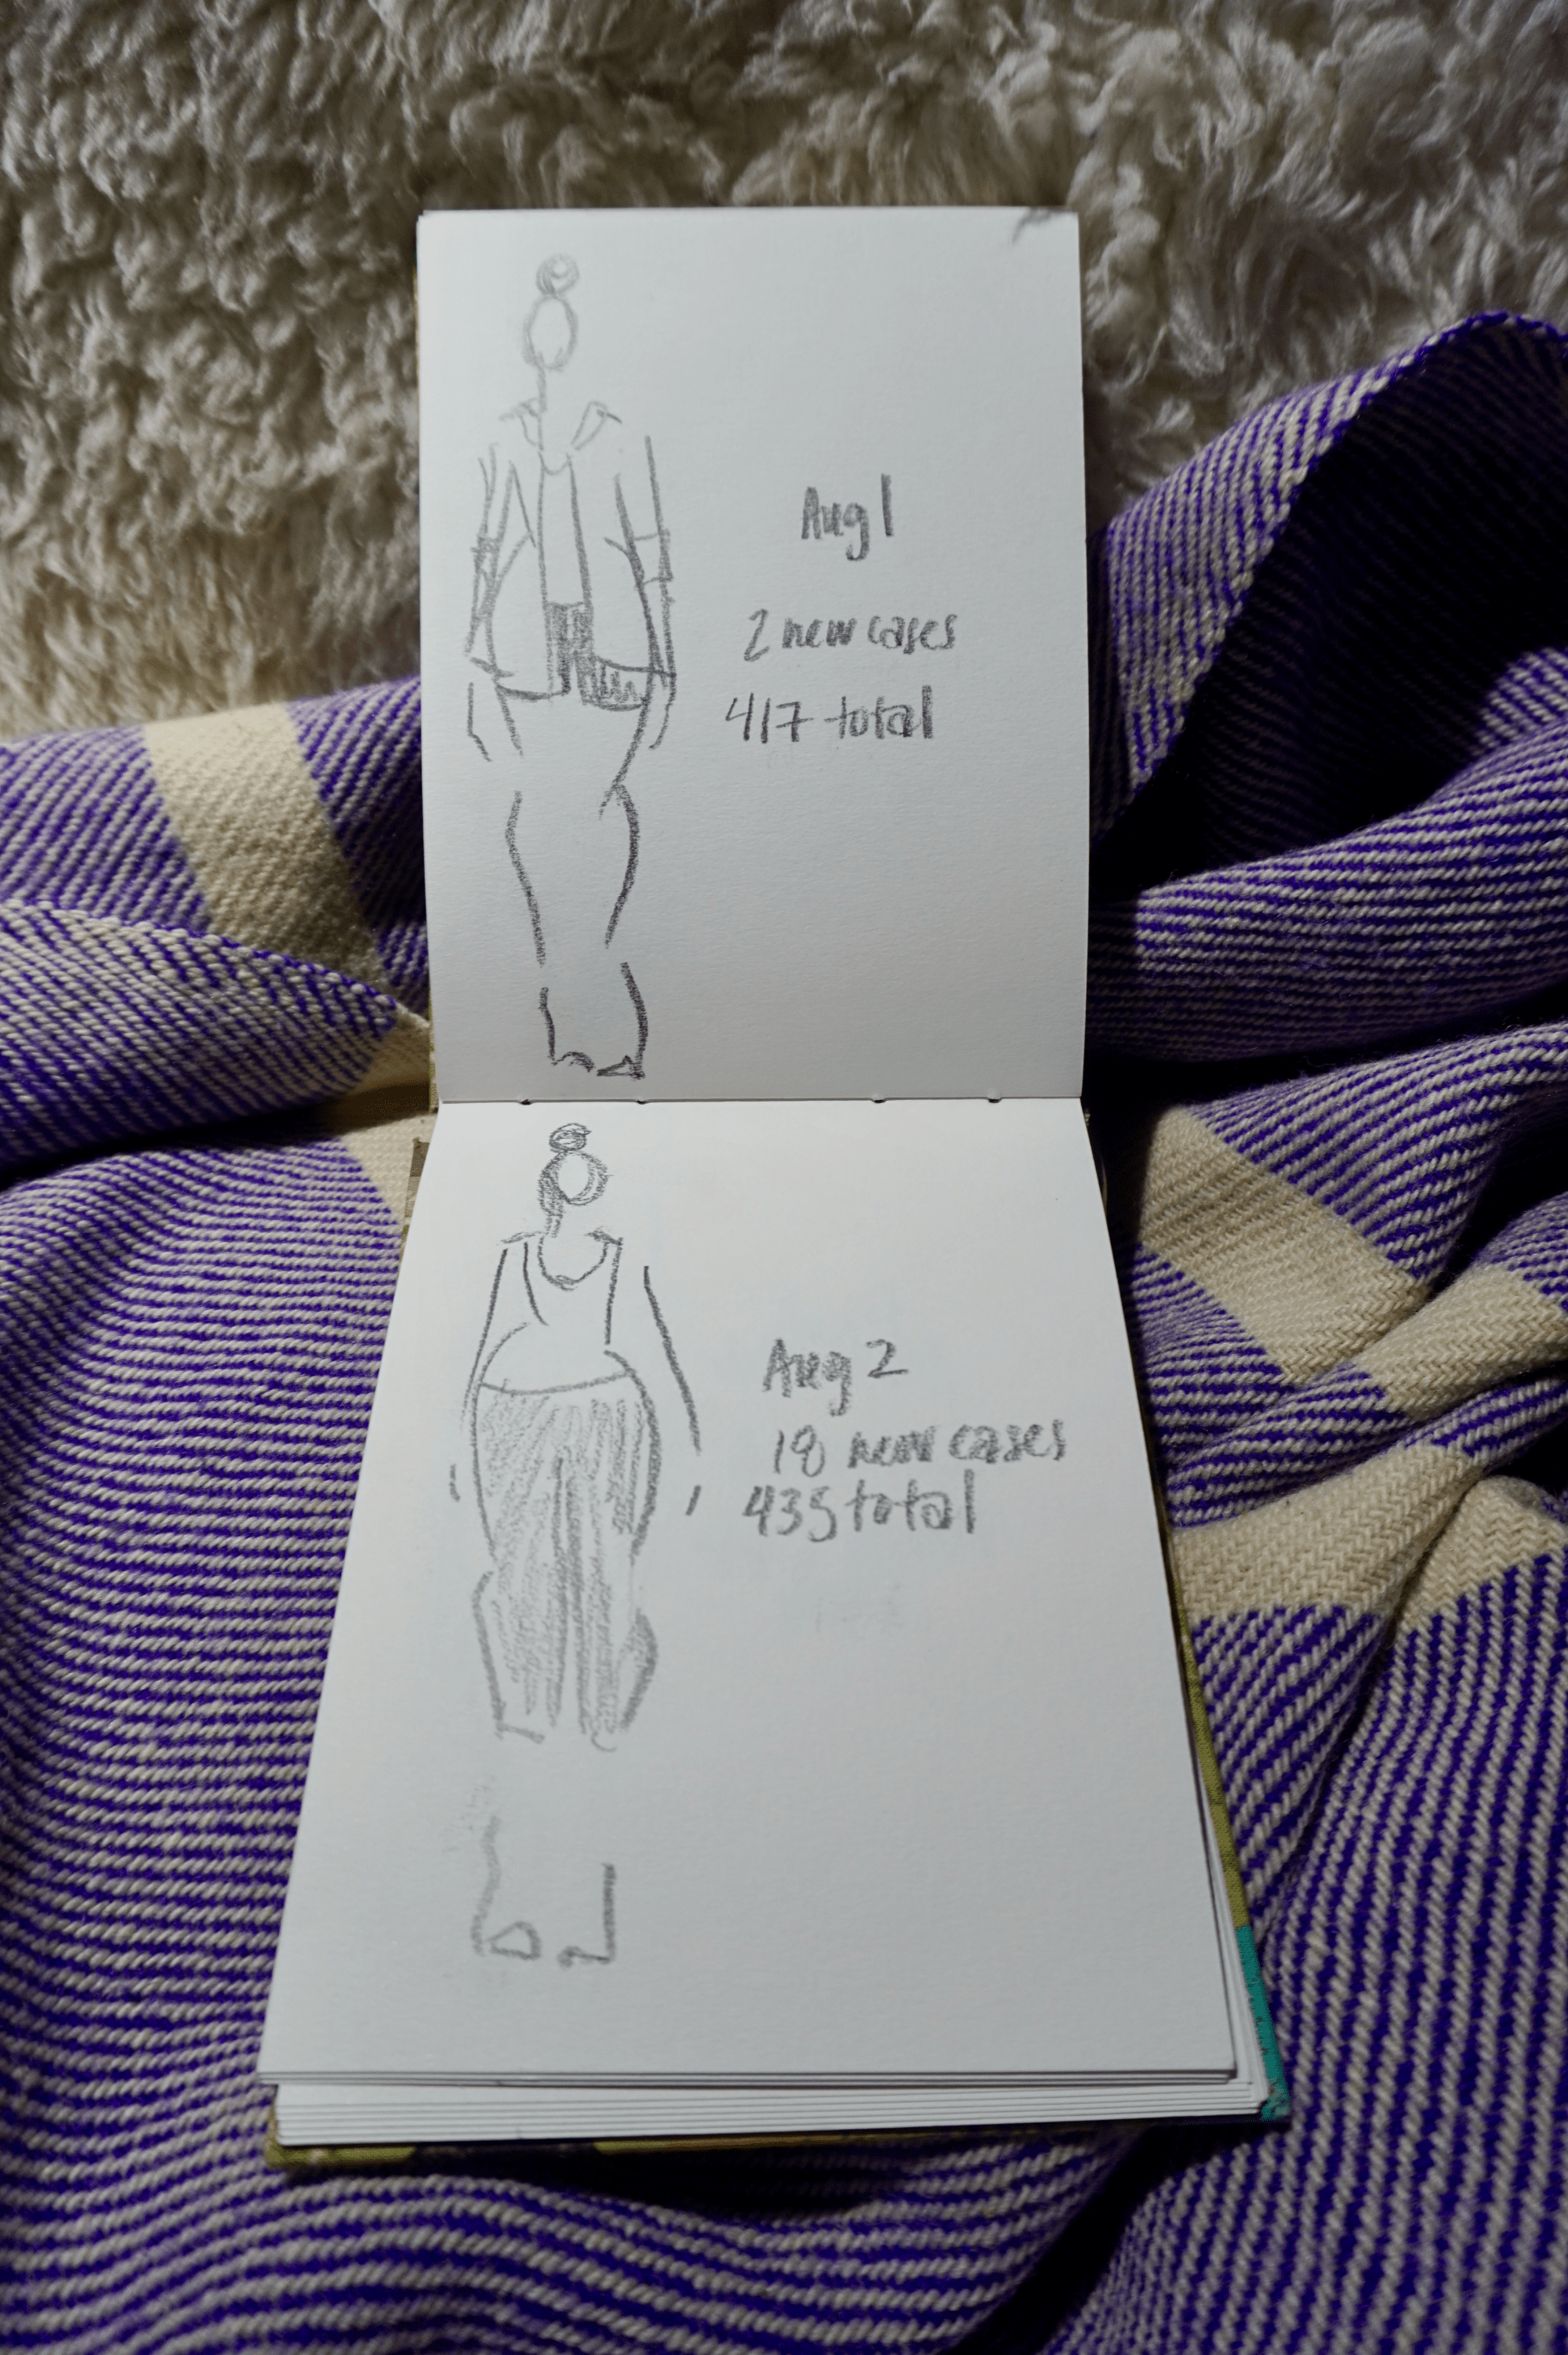 Aug 1
2 new cases
417 total
Aug 2
18 new cases
435 total